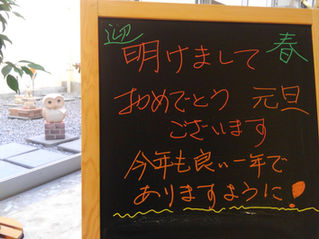 迎 春
明けまして
おめでとう 元旦
ございます
今年も良い一年で
ありますように!